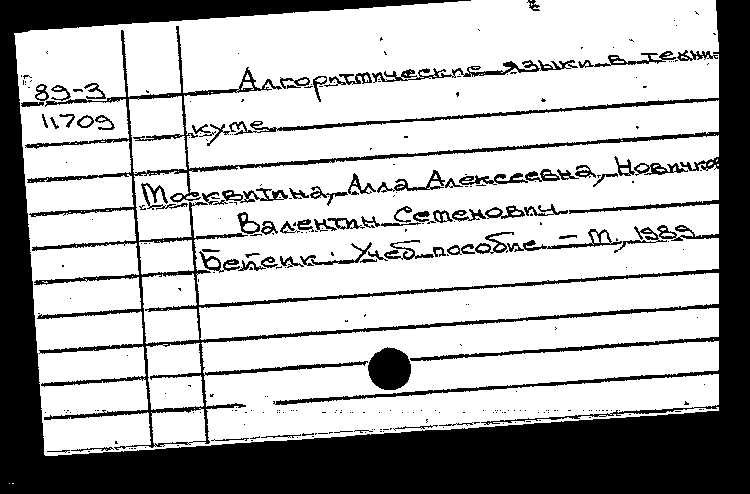 89-3
11709
Алгоритмические языки в техни-
куме
Москвитина, Алла Алексеевна, Новичков
Валентин Семенович
Бейсик: Учеб. пособие – М, 1989